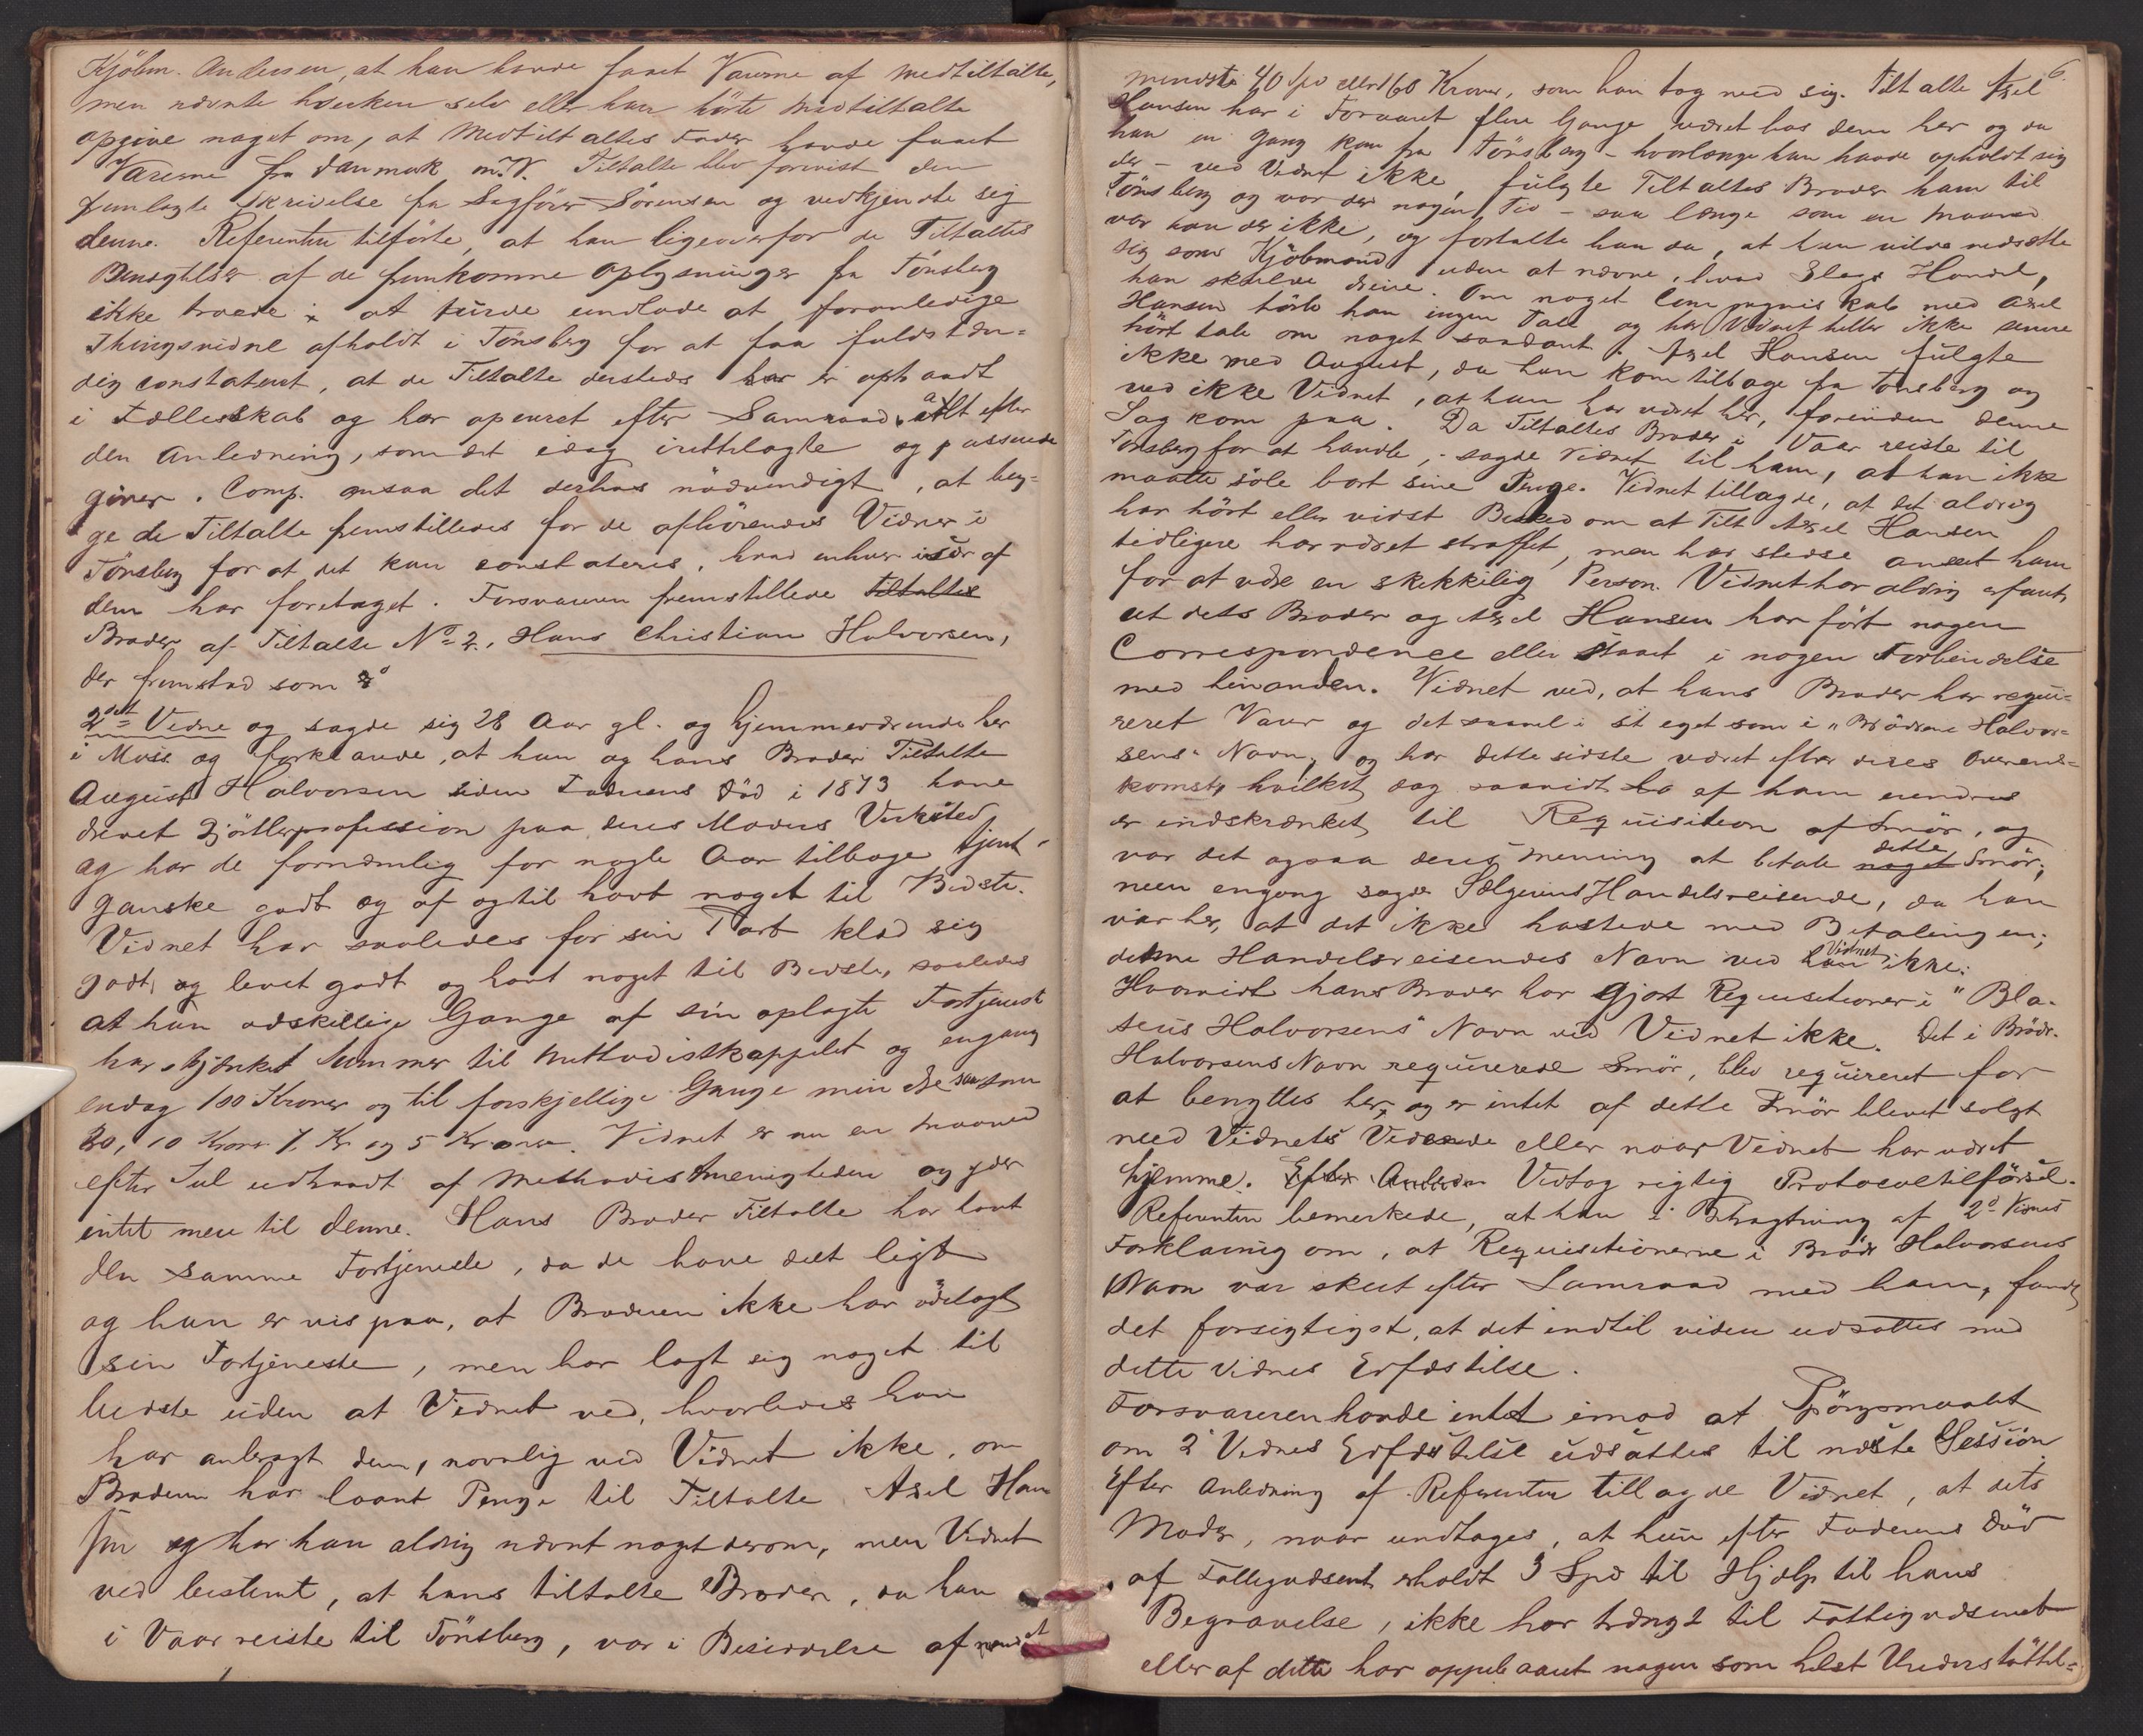 Kjöbm. Andersen, at han havde faaet Varerne af Medtiltalte,
men nævnte hverken selv eller han hörte Medtiltalte
opgive noget om, at Medtiltaltes Fader havde faaet
Varerne fra Danmark m. V. Tiltalte blev forevist den
fremlagte Skrivelse fra Sagförer Sörensen og vedkjendte sig
denne. Referenten tilförte, at han ligeoverfor de Tiltaltes
Benægtelse af de fremkomne Oplysninger fra Tönsberg
ikke troede at turde undlade at foranledige
Thingsvidne afholdt i Tönsberg for at faa fuldstæn=
dig constateret, at de Tiltalte dersteds har optraadt
i Fællesskab og har opereret efter Samraad, alt efter
den Anledning, som det idag irettelagte og passerede
giver. Comp. ansaa det derhos nödvendigt, at beg=
ge de Tiltalte fremstilledes for de afhörendes Vidner i
Tönsberg for at det kan constateres, hvad enhver især af
dem har foretaget. Forsvareren fremstillede Tiltaltes
Broder af Tiltalte No 2, Hans Christian Halvorsen,
der fremstod som
2det Vidne og sagde sig 28 Aar gl. og hjemmeværende her
i Moss og forklarede, at han og hans Broder Tiltalte
August Halvorsen siden Faderens Död i 1873 have
drevet Gjörtlerprofession paa deres Moders Verksted
og har de fornemlig for nogle Aar tilbage tjent
ganske godt og af og til havt noget til Bedste.
Vidnet har saaledes for sin Part klæd sig
godt, og levet godt og havt noget til Bedste, saaledes
at han adskillige Gange af sin oplagte Fortjeneste
har skjænket Summer til Methodistkappelet og engang
endog 100 Kroner og til forskjellige Gange mindre saasom
20, 10 Kroner 7 Kr og 5 Kroner. Vidnet er nu en Maaned
efter Jul udtraadt af Methodistmenigheden og yder
intet mere til denne. Hans Broder Tiltalte har havt
den samme Fortjeneste, da de have delt ligt
og han er vis paa, at Broderen ikke har ödelagt
sin Fortjeneste, men har lagt sig noget til
bedste uden at Vidnet ved, hvorledes han
har anbragt dem, navnlig ved Vidnet ikke, om
Broderen har laant Penge til Tiltalte Axel Han
sen og har han aldrig nævnt noget derom, men Vidnet
ved bestemt, at hans tiltalte Broder, da han
i Vaar reiste til Tönsberg, var i Besiddelse af
6.
mindst 40 Spd eller 160 Kroner, som han tog med sig. Tiltalte Axel
Hansen har i Forvaret flere Gange været hos dem her og da
han en Gang kom fra Tönsberg – hvorlænge han havde opholdt sig
der – ved Vidnet ikke, fulgte Tiltaltes Broder ham til
Tönsberg og var der nogen Tid – saa længe som en Maaned
var han der ikke, og fortalte han da, at han vilde nedsætte
sig som Kjöbmand uden at nævne, hvad Slags Handel,
han skulde drive. Om noget Compagniskab med Axel
Hansen hörte han ingen Tale og har Vidnet heller ikke senere
hört tale om noget saadant. Axel Hansen fulgte
ikke med August, da han kom tilbage fra Tönsberg og
ved ikke Vidnet, at han har været her, forinden denne
Sag kom paa. Da Tiltaltes Broder i Vaar reiste til
Tönsberg for at handle, sagde Vidnet til ham, at han ikke
maatte söle bort sine Penge. Vidnet tillagde, at det aldrig
har hört eller vidst Besked om at Tilt Axel Hansen
tidligere har været straffet, men har stedse anseet ham
for at være en skikkelig Person. Vidnet har aldrig erfaret,
at dets Broder og Axel Hansen har fört nogen
Correspondence eller staaet i nogen Forbindelse
med hinanden. Vidnet ved, at hans Broder har requi=
reret Varer og det saavel i sit eget som i "Brödrene Halvor=
sens" Navn, og har dette sidste været efter deres Overens=
komst, hvilket dog saavidt af ham erindres
er indskrænket til Requisition af Smör, og
var det ogsaa deres Mening at betale noget dette Smör,
men engang sagde Sælgerens Handelsreisende, da han
var her, at det ikke hastede med Betalingen;
denne Handelsreisendes Navn ved han Vidnet ikke.
Hvorvidt hans Broder har gjort Requisitioner i "Bla-
seus Halvorsens" Navn ved Vidnet ikke. Det i Brödr.
Halvorsens Navn requirerede Smör, blev requireret for
at benyttes her, og er intet af dette Smör blevet solgt
med Vidnets Vidende eller naar Vidnet har været
hjemme. Efter Anledn Vedtog rigtig Protocoltilförsel.
Referenten bemerkede, at han i Betragtning af 2d Vidnes
Forklaring om, at Requisitionerne i Brödr Halvorsens
Navn var skeet efter Samraad med ham, fandt
det forsigtigst, at det indtil videre udsattes med
dette Vidnes Edfæstelse.
Forsvareren havde intet imod at Spörgsmaalet
om 2 Vidnes Edfæstelse udsættes til næste Session
Efter Anledning af Referenten tillagde Vidnet, at dets
Moder, naar undtages, at hun efter Faderens Död
af Fattigvæsenet erholdt 3 Spd til Hjælp til hans
Begravelse, ikke har trængt til Fattigvæsenet
eller af dette har oppebaaret nogen som helst Understöttel=